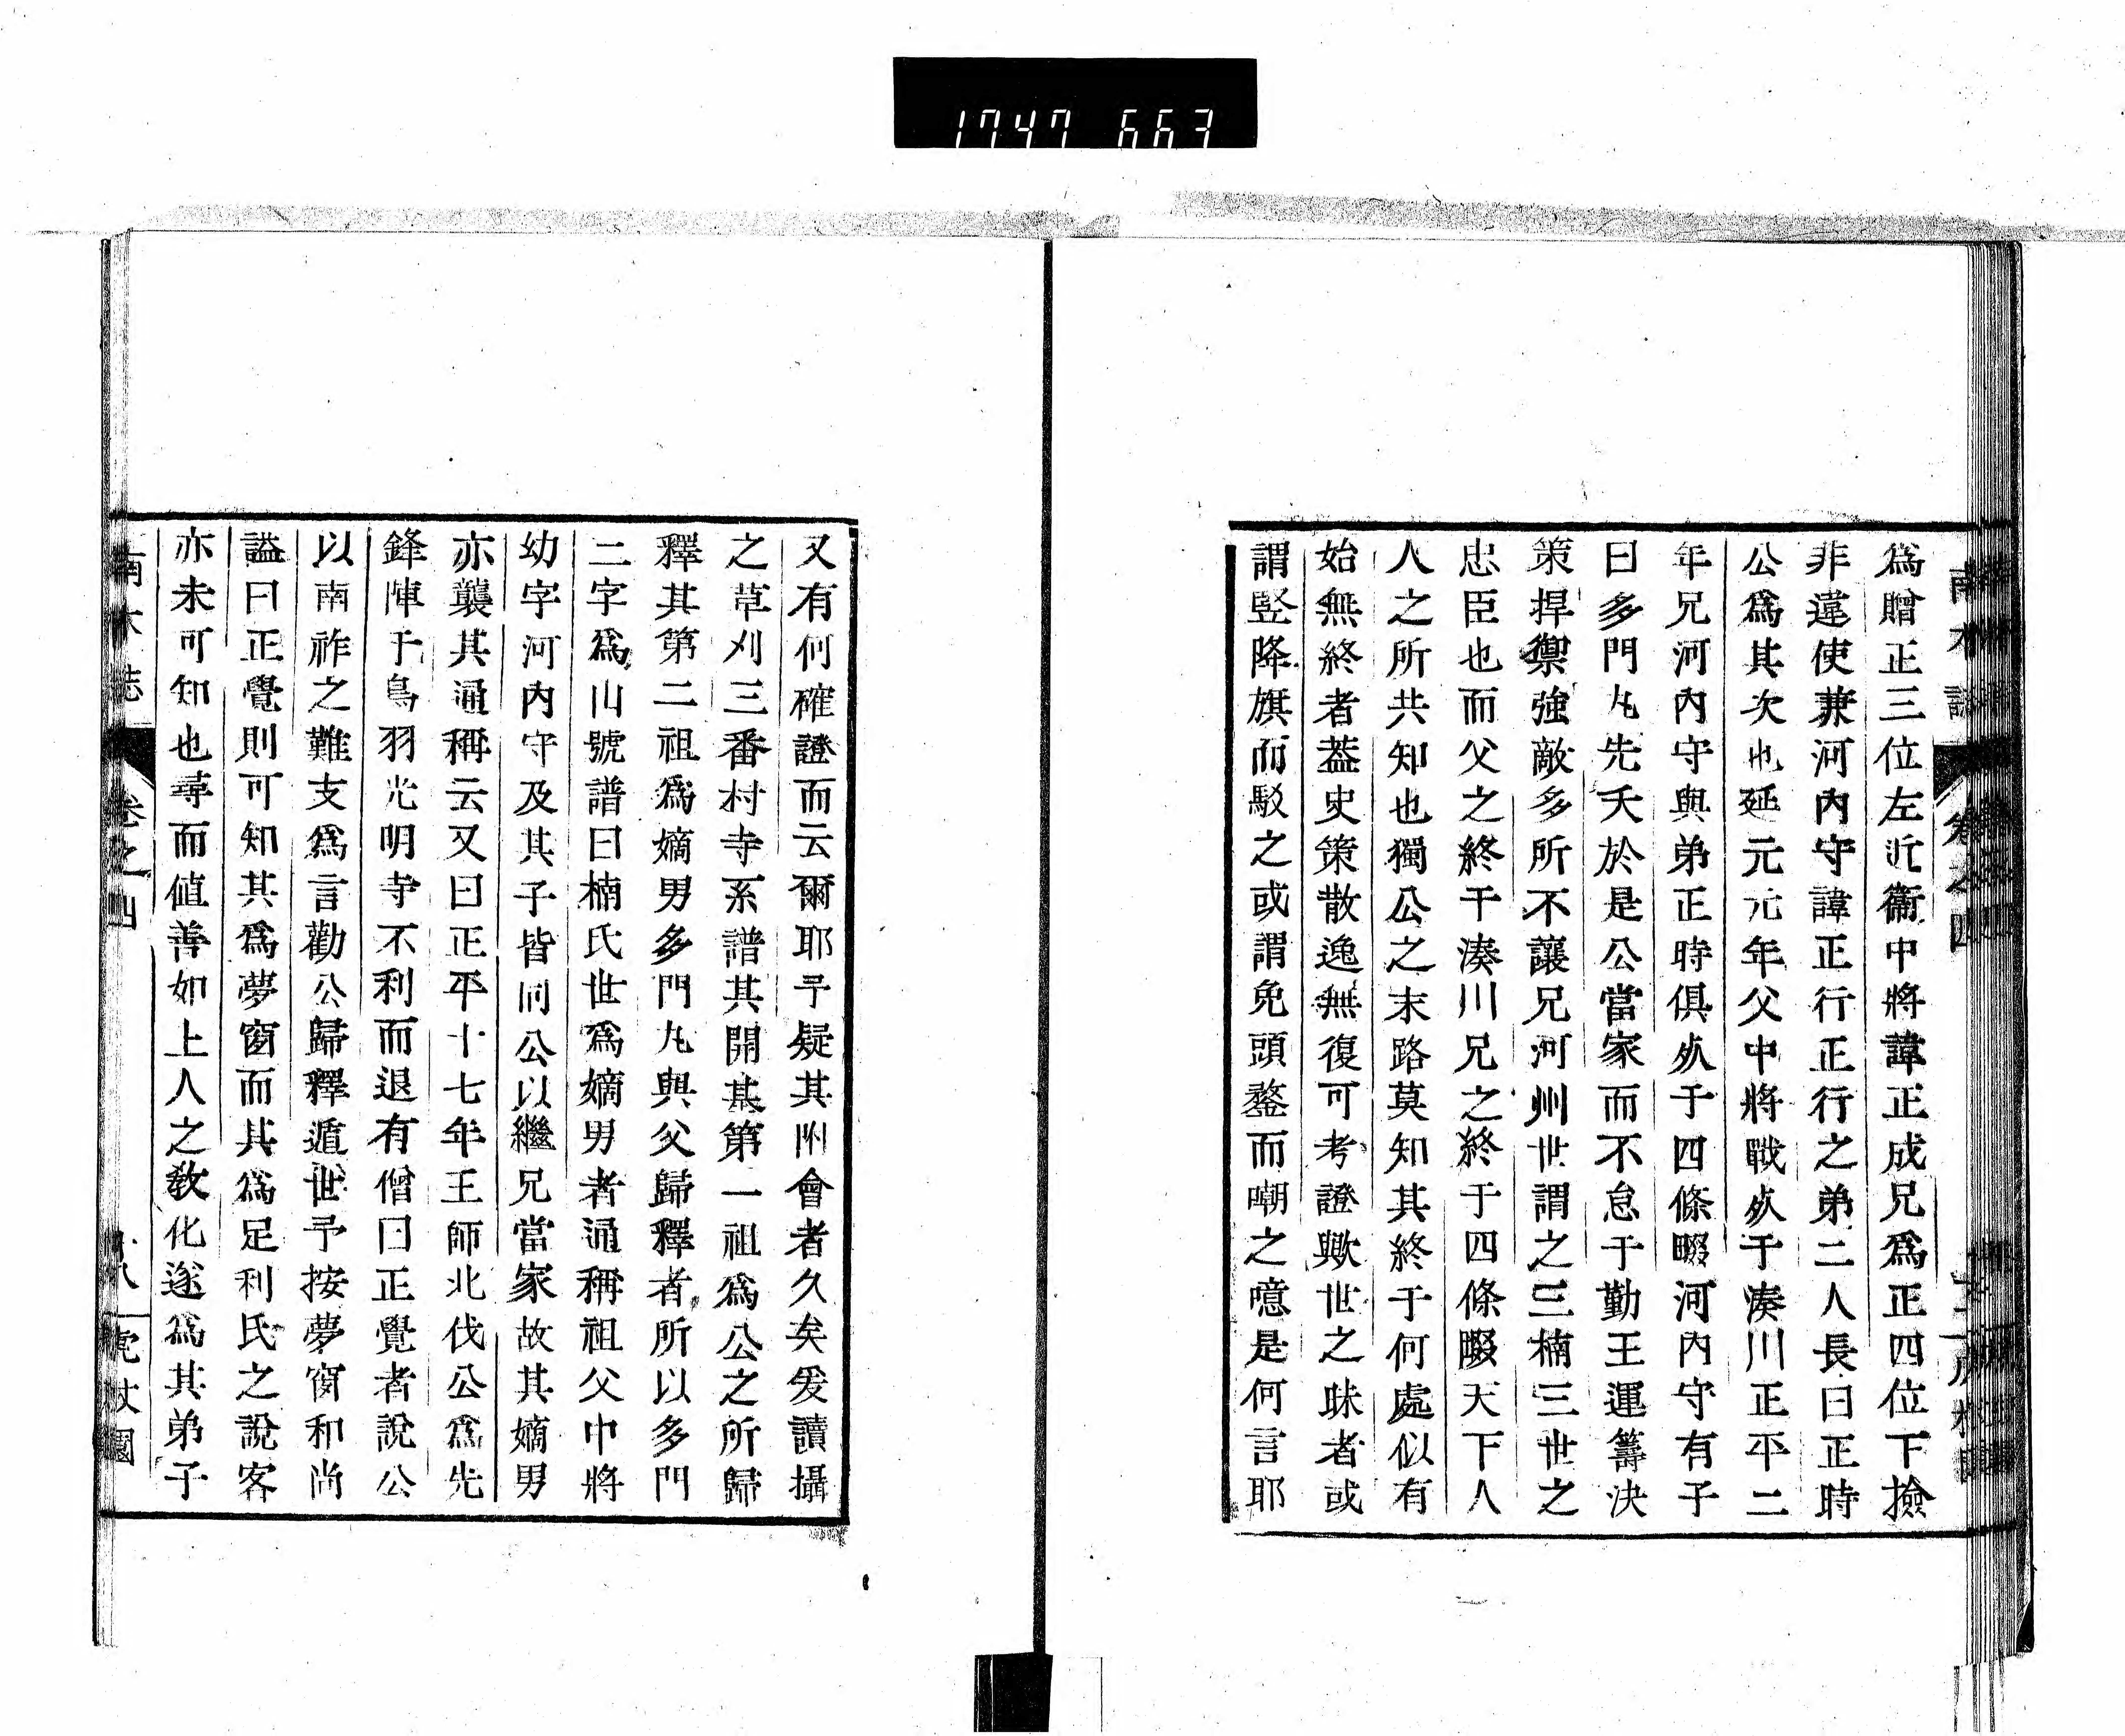 1747 663
爲贈正三位左近衞中將諱正成兄爲正四位下撿
非違使兼河內守諱正行正行之弟二人長曰正時
公爲其次也延元元年父中將戰歿于湊川正平二
年兄河內守與弟正時俱歿于四條畷河內守有子
曰多門丸先夭於是公當家而不怠于勤王運籌決
策捍禦強敵多所不讓兄河州世謂之三楠三世之
忠臣也而父之終于湊川兄之終于四條畷天下人
人之所共知也獨公之末路莫知其終于何處似有
始無終者葢史策散逸無復可考證歟世之昧者或
謂竪降旗而駁之或謂免頭鍪而嘲之噫是何言耶
又有何確證而云爾耶予疑其附會者久矣爰讀攝
之草刈三番村寺系譜其開基第一祖爲公之所歸
釋其第二祖爲嫡男多門丸與父歸釋者所以多門
二字爲山號譜曰楠氏世爲嫡男者通稱祖父中將
幼字河內守及其子皆同公以繼兄當家故其嫡男
亦襲其通稱云又曰正平十七年王師北伐公爲先
鋒陣于鳥羽光明寺不利而退有僧曰正覺者說公
以南祚之難支爲言勸公歸釋遁世予按夢窗和尚
謚曰正覺則可知其爲夢窗而其爲足利氏之說客
亦未可知也尋而値善如上人之敎化遂爲其弟子
南木誌 卷之四